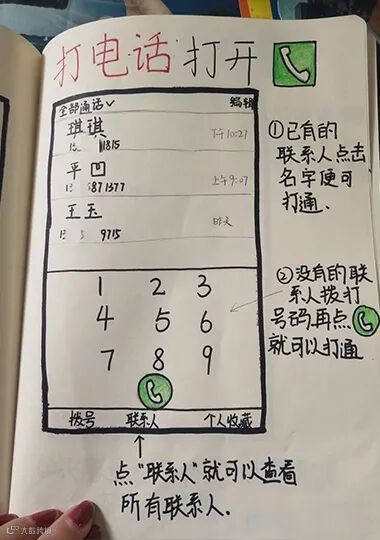 打电话打开
全部通话 编辑
琪琪 下午10:27
15 1815
平凹 上午9:07
15 5871577
王玉 昨天
15 5 9715
①已有的
联系人点击
名字便可
打通.
1 2 3
4 5 6
7 8 9
②没有的联
系人拨打
号码再点
就可以打通
拨号 联系人 个人收藏
点"联系人"就可以查看
所有联系人.
大数跨境